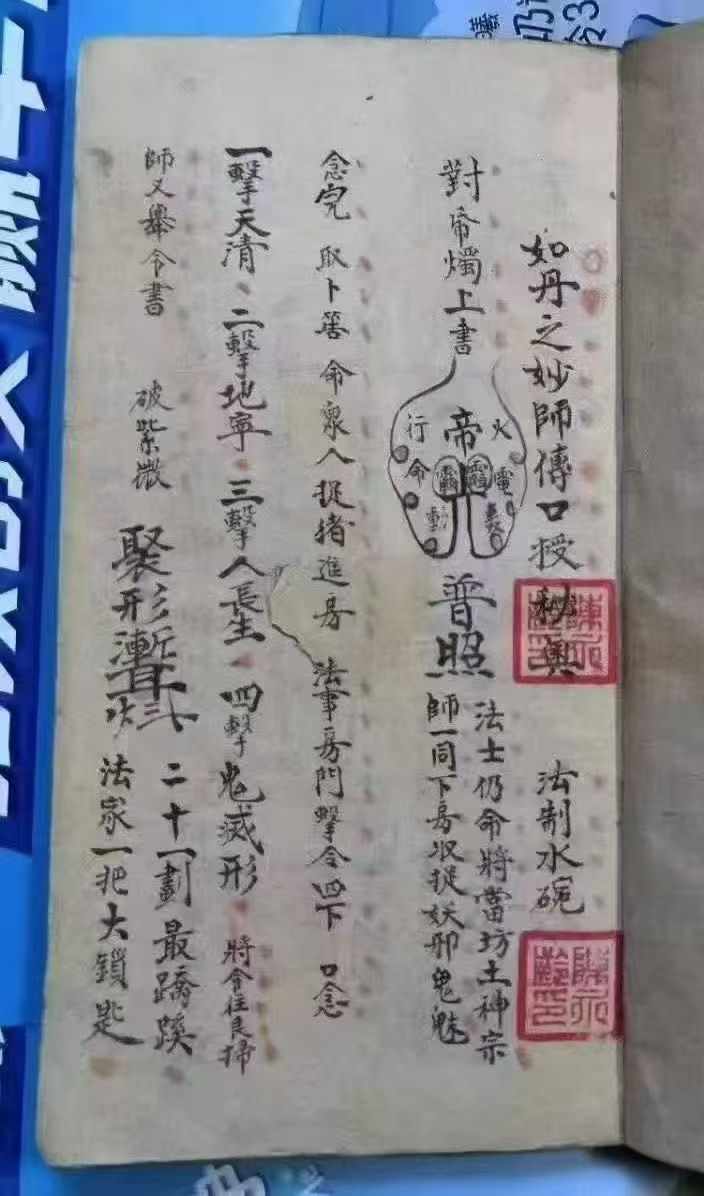 如丹之妙師傳口授秘奥 法制水碗
對帝燭上書
火電
帝
行命動
普照
法士仍命將當坊土神宗
師一同下房收捉妖邪鬼魅
念完 取卜筶 命衆人捉猪進房 法事房門擊令四下 口念
一擊天清 二擊地寧 三擊人長生 四擊鬼滅形 將令往良掃
師又舉令書 破紫微
聚形
二十一劃最蹺蹊
法家一把大鎖匙